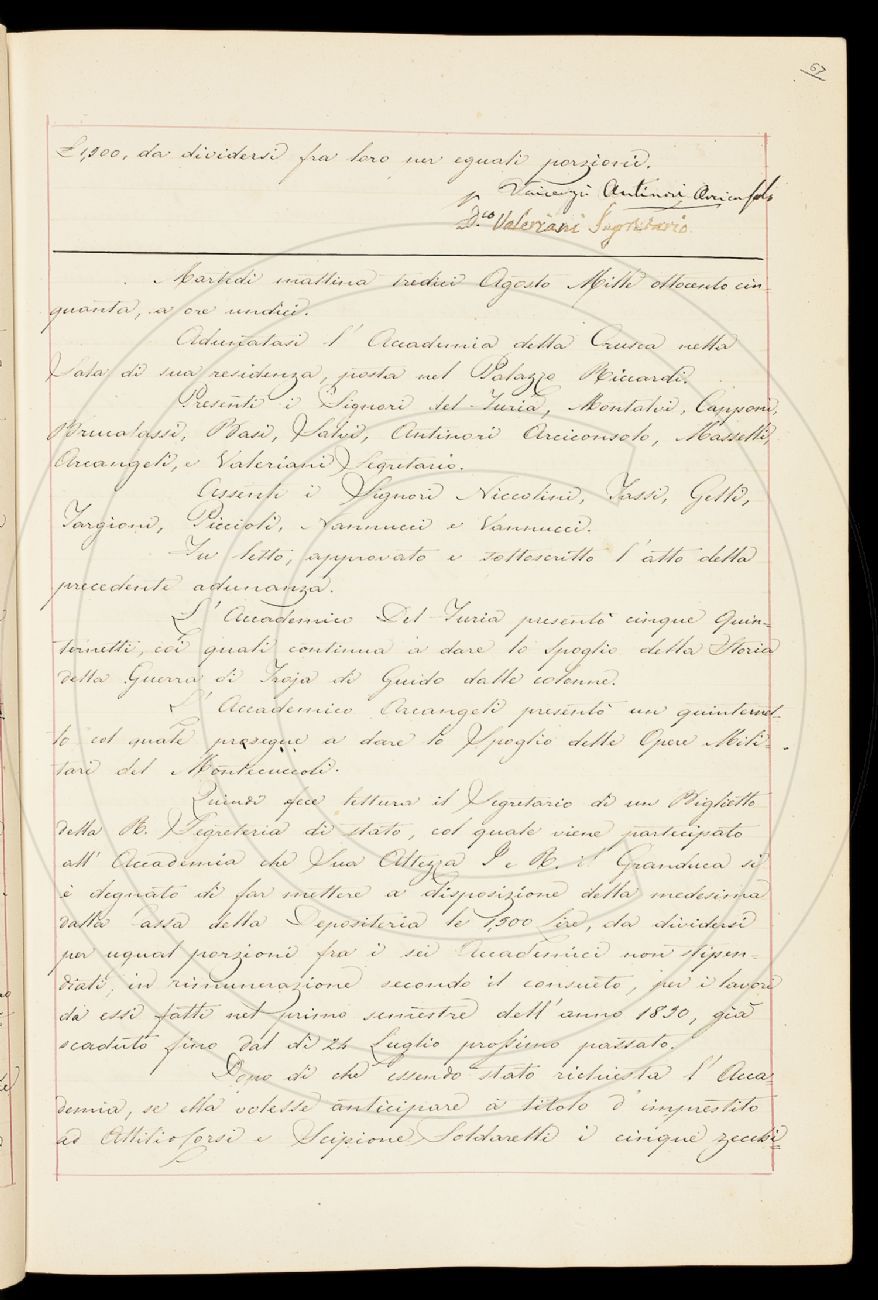 67
£ 1,500, da dividersi fra loro per eguali porzioni.
Vincenzio Antinori Arciconsolo
D.co Valeriani Segretario
Martedì mattina tredici Agosto Mille ottocento cin-
quanta, a ore undici.
Adunatasi l' Accademia della Crusca nella
Sala di sua residenza, posta nel Palazzo Riccardi.
Presenti i Signori del-Furia, Montalvi, Capponi,
Brucalassi, Basi, Salvi, Antinori Arciconsolo, Masselli,
Arcangeli, e Valeriani Segretario.
Assenti i Signori Niccolini, Tassi, Gelli,
Targioni, Piccioli, Nannucci e Vannucci.
Fu letto, approvato e sottoscritto l' atto della
precedente adunanza.
L' Accademico Del-Furia presentò cinque quin-
ternetti, coi quali continua a dare lo spoglio della Storia
della Guerra di Troja di Guido dalle colonne.
L' Accademico Arcangeli presentò un quinternet-
to col quale prosegue a dare lo Spoglio delle Opere Mili-
tari del Montecuccoli.
Quindi fece lettura il Segretario di un Biglietto
della R. Segreteria di stato, col quale viene participato
all' Accademia che Sua Altezza I e R. il Granduca si
è degnato di far mettere a disposizione della medesima
dalla Cassa della Depositeria le 1,500 Lire, da dividersi
per ugual porzioni fra i sei Accademici non stipen-
diati, in rimunerazione secondo il consueto, per i lavori
da essi fatti nel primo semestre dell' anno 1850, già
scaduto fino dal dì 24 Luglio prossimo passato.
Dopo di che essendo stato richiesta l' Acca-
demia, se ella volesse anticipare a titolo d' imprestito
ad Attilio Corsi e Scipione Soldaretti i cinque zecchi-